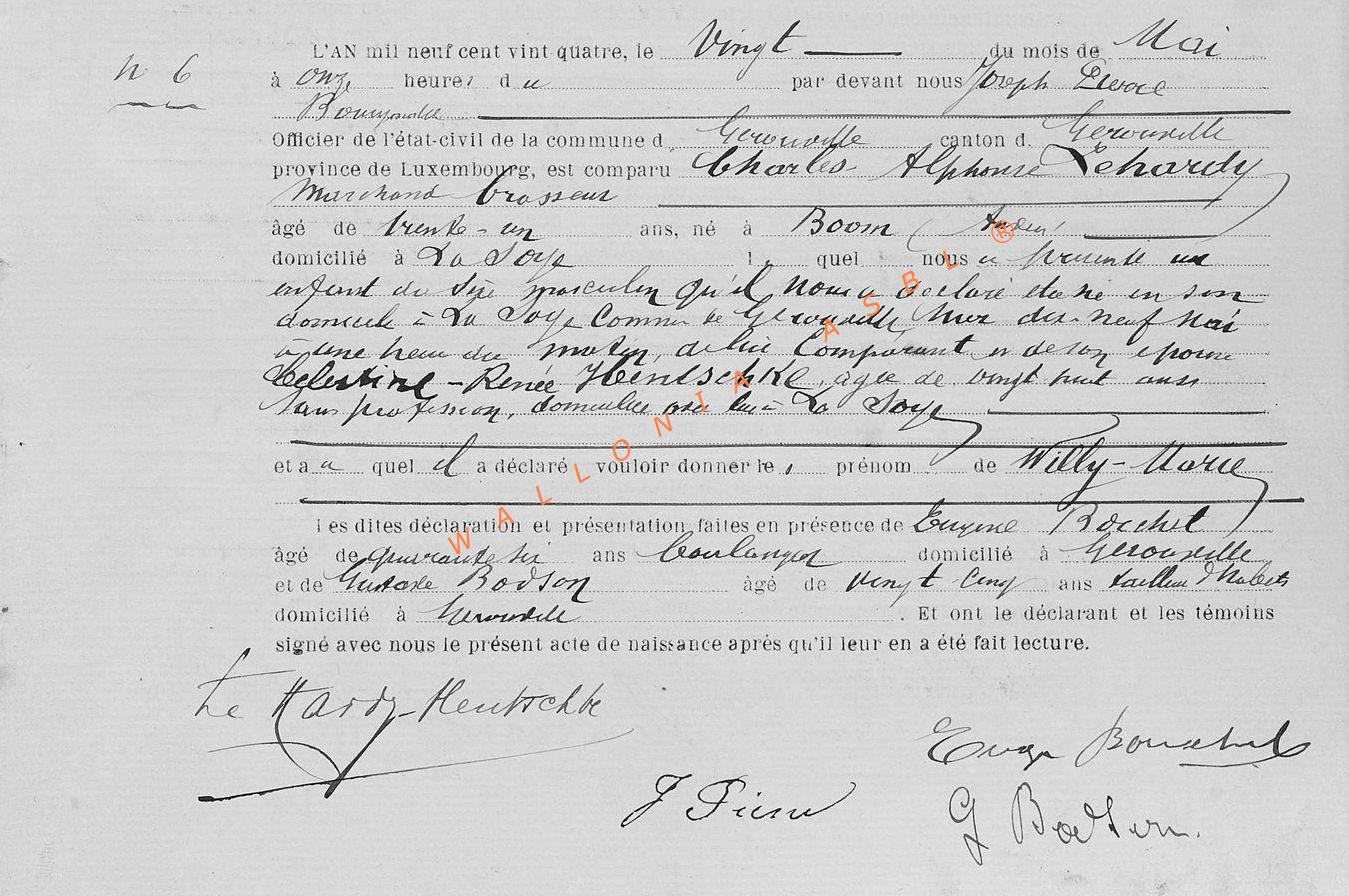 N° 6
L'AN mil neuf cent vint-quatre, le Vingt du mois de Mai
à onze heures du par devant nous Joseph Pierre
Bourgmestre
Officier de l'état-civil de la commune d. Gerouville canton d. Gerouville
province de Luxembourg, est comparu Charles Alphonse Lehardy
Marchand brasseur
âgé de trente-un ans, né à Boom (
domicilié à La Soye l. quel nous a présenté un
enfant du sexe masculin qu'il nous a déclaré être né en son
domicile à La Soye Commune de Gerouville, hier dix-neuf Mai
à une heure du matin, de lui Comparant et de son épouse
Célestine-Renée Hentschke, âgée de vingt huit ans
sans profession, domiciliée avec lui à La Soye
et a u quel il a déclaré vouloir donner le s prénom de Willy-Marie
Les dites déclaration et présentation faites en présence de Eugène Bouchet
âgé de quarante six ans boulanger domicilié à Gerouville
et de Gustave Bodson âgé de vingt cinq ans tailleur d'habits
domicilié à Gerouville . Et ont le déclarant et les témoins
signé avec nous le présent acte de naissance après qu'il leur en a été fait lecture.
Le Hardy-Hentschke
Eug Bouchet
J Pierre
G Bodson.
WALLONIA ASBL ®